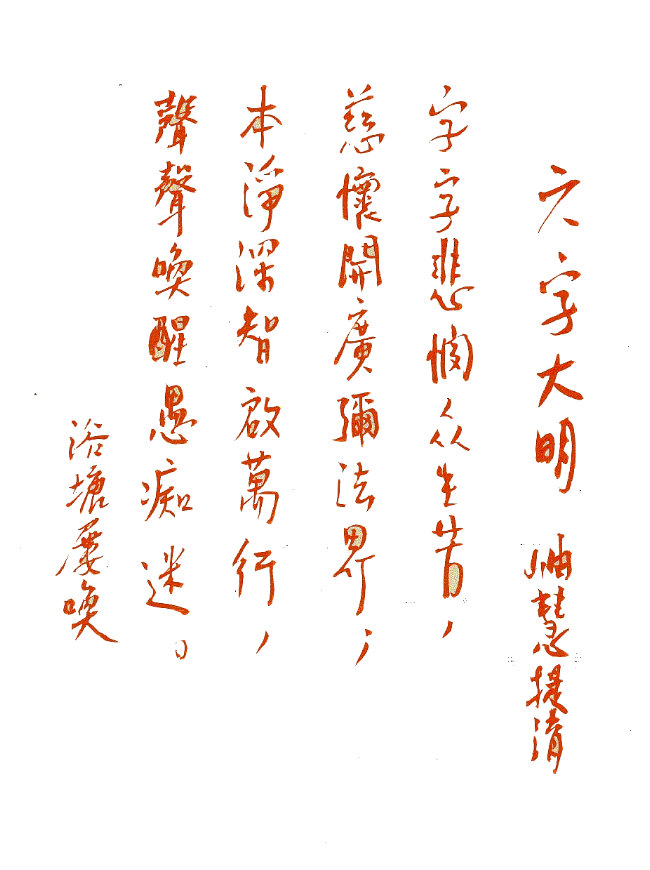 六字大明 岫慧提清
字字悲憫众生苦，
慈懷開廣彌法界，
本淨深智啟萬行，
聲聲喚醒愚痴迷。
浴塘屢喚